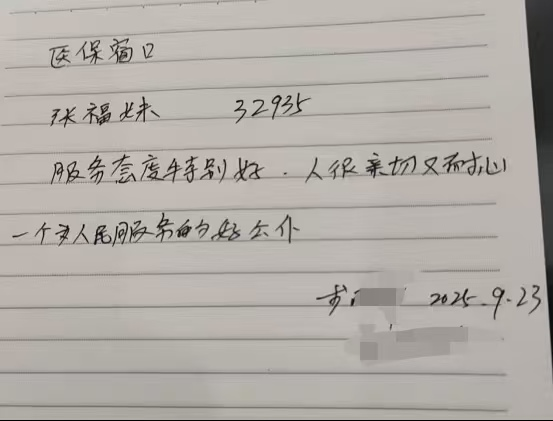 医保窗口
张福妹 32935
服务态度特别好。人很亲切又耐心
一个为人民服务的好公仆
2025.9.23